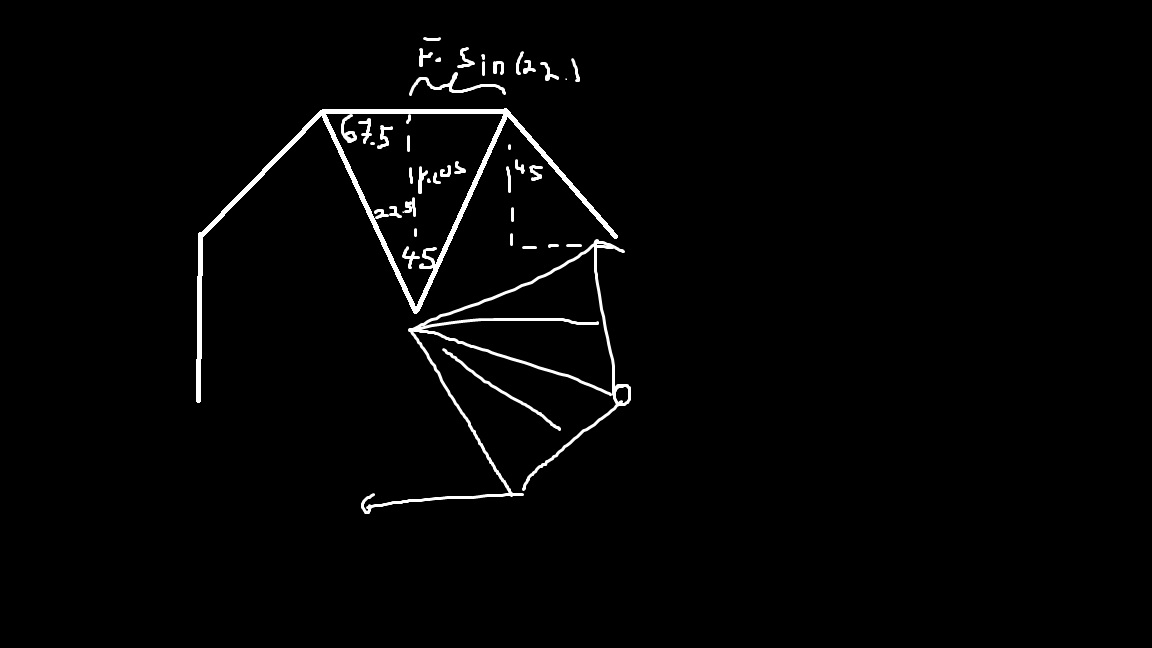 r. sin(22.)
67.5
r.cos
45
22.5
45